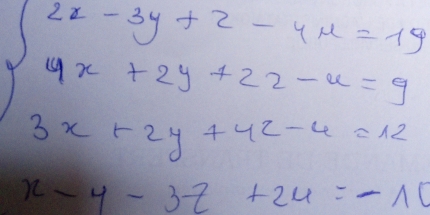 2x - 3y + z - 4u = 19
4x + 2y + 2z - u = 9
3x + 2y + 4z - u = 12
x - y - 3z + 2u = -10